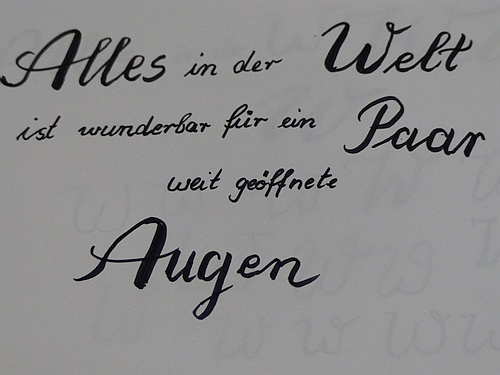 Alles in der Welt
ist wunderbar für ein Paar
weit geöffnete
Augen